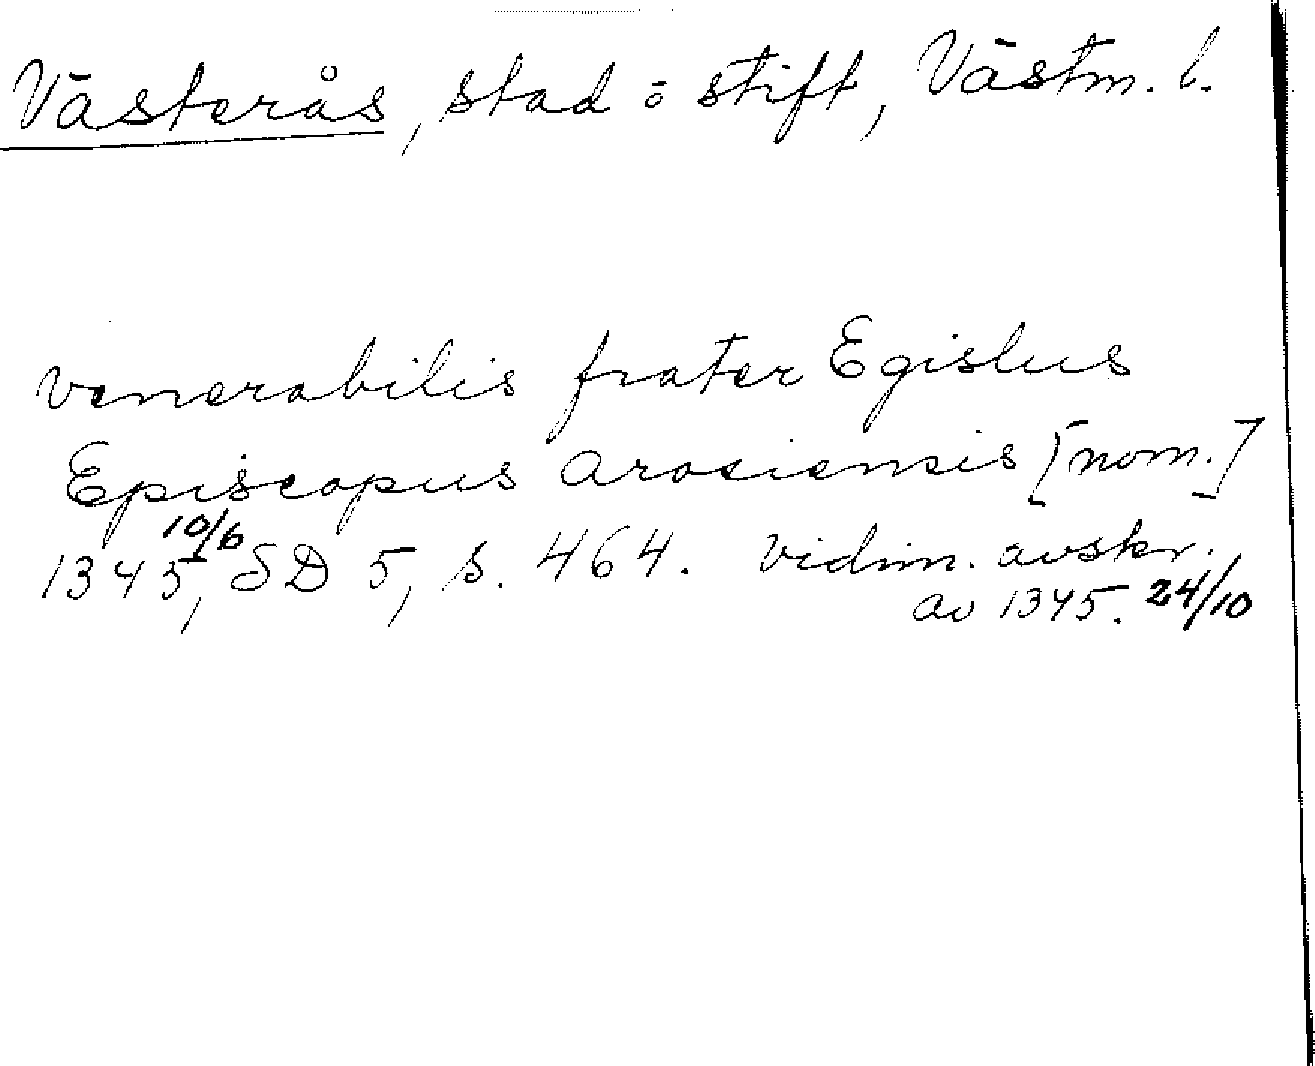 Västerås, stad o stift, Västm. l.
venerabilis frater Egislus
Episcopus arosiensis [nom.]
1345 10/6, SD 5, s. 464. Vidim. avskr.
av 1345. 24/10